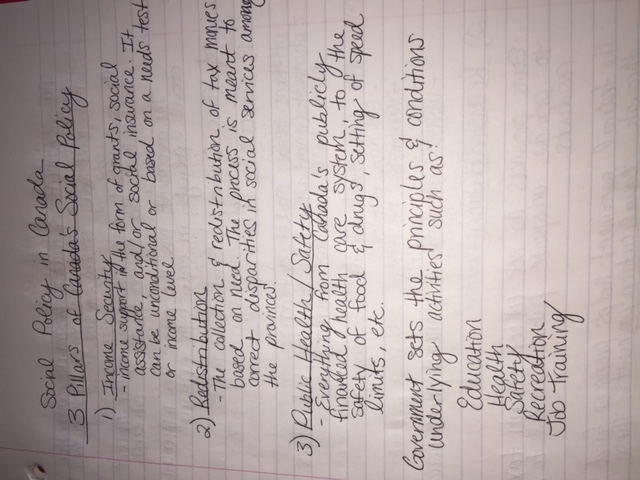 Social Policy in Canada
3 Pillars of Canada's Social Policy
1) Income Security
- income support in the form of grants, social
assistance, and/or social insurance. It
can be unconditional or based on a needs test
or income level
2) Redistribution
- The collection & redistribution of tax monies
based on need. The process is meant to
correct disparities in social services among
the provinces.
3) Public Health / Safety
- Everything from Canada's publicly
financed health care system, to the
safety of food & drugs, setting of speed
limits, etc.
Government sets the principles & conditions
underlying activities such as:
Education
Health
Safety
Recreation
Job Training